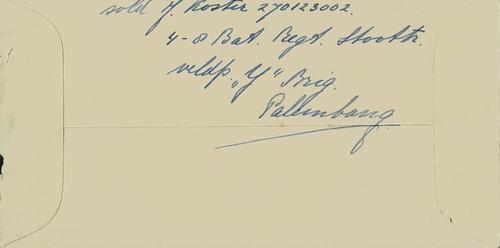 sold J. Koster 270123002.
4-8 Bat. Regt. Stoottr.
veldp. „Y" Brig.
Palembang